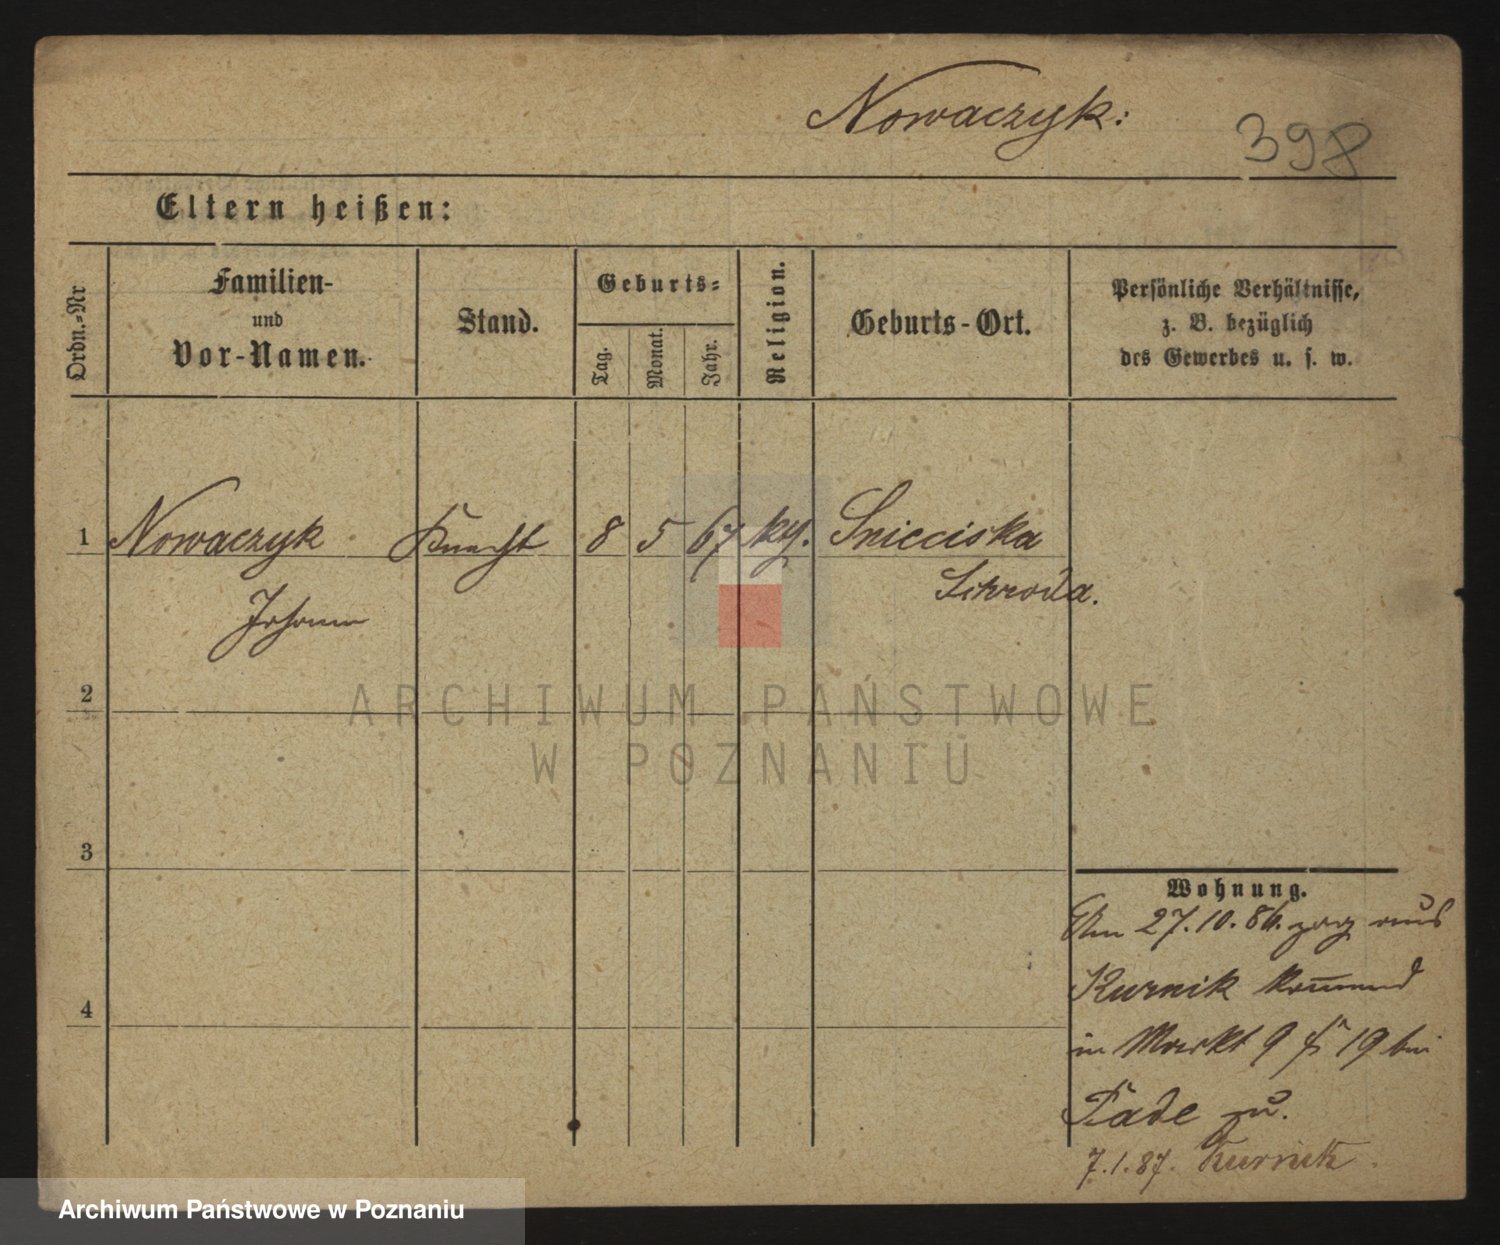 Nowaczyk:
398
Eltern heißen:
Ordn.-Nr
Familien-
und
Vor-Namen.
Stand.
Geburts-
Tag.
Monat.
Jahr.
Religion.
Geburts-Ort.
Persönliche Verhältnisse,
z. B. bezüglich
des Gewerbes u. s. w.
1 Nowaczyk Knecht 8 5 67 Snicciska
Johann Schroda.
2
ARCHIWUM PAŃSTWOWE
W POZNANIU
3
Wohnung.
Am 27.10.86. zog aus
Kurnik kommend
in Markt 9 19 bei
Tade zu.
4
7.1.87. Kurnik.
Archiwum Państwowe w Poznaniu